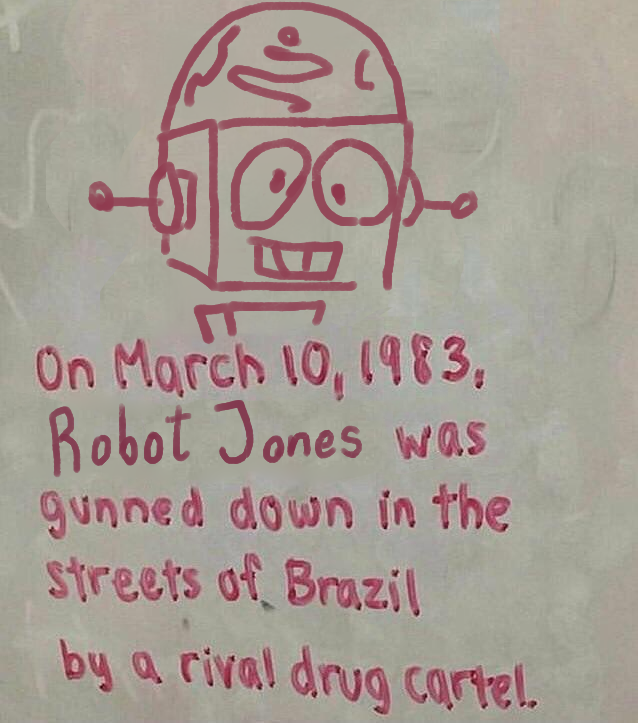 On March 10, 1983,
Robot Jones was
gunned down in the
streets of Brazil
by a rival drug cartel.